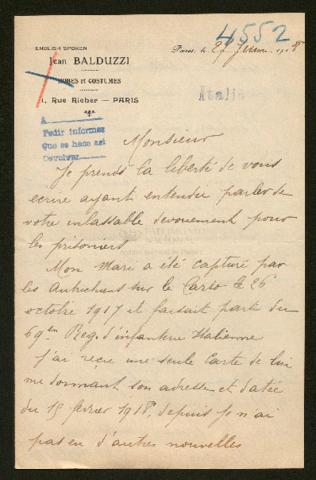 ENGLISH SPOKEN
4552
Jean BALDUZZI
Paris, le 27 Juin 1918
ROBES ET COSTUMES
Rue Rieher — PARIS
Italia
A
Pedir informes
Que se hace así
Devolver
Monsieur
Je prends la liberté de vous
ecrire ayant entendu parler de
votre inlassable devouement pour
les prisoniers
Mon Mari a été capturé par
les Autrichiens sur le Carso le 26
octobre 1917 et faisait parti du
69em Reg. d'infanterie Italienne
j'ai reçue une seule Carte de lui
me donnant son adresse et datée
du 15 fevrier 1918, depuis je n'ai
pas eu d'autres nouvelles